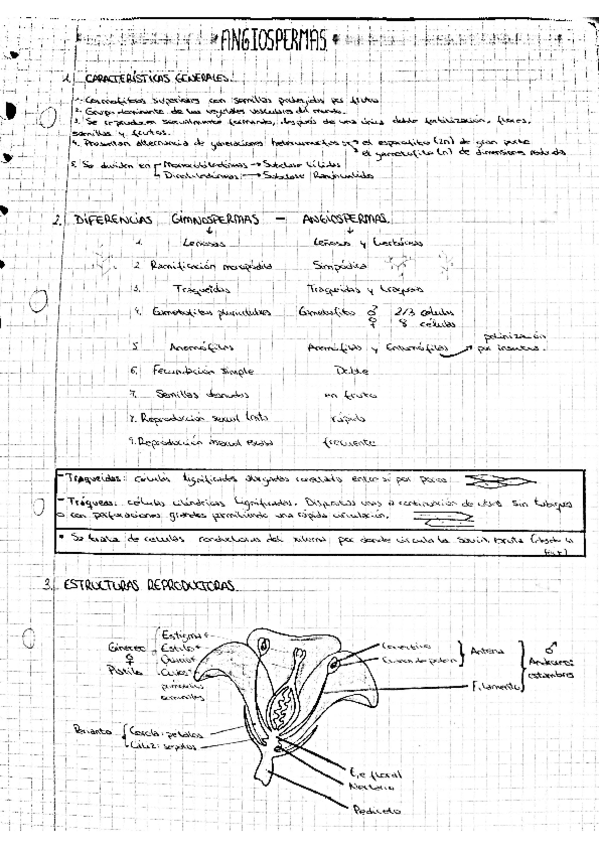 ANGIOSPERMAS
1. CARACTERÍSTICAS GENERALES.
1. Cormofitas superiores con semillas protegidas por fruto
2. Grupo dominante de las vegetales vasculares del mundo.
3. Se reproducen sexualmente formando, después de una única doble fertilización, flores,
semillas y frutos.
4. Presentan alternancia de generaciones heteromorfas el esporofito (2n) de gran porte
el gametofito (n) de dimensiones reducida
5. Se dividen en Monocotiledóneas → Subclase Liliidas
Dicotiledóneas → Subclase
2. DIFERENCIAS GIMNOSPERMAS - ANGIOSPERMAS.
1. Leñosas Leñosas y herbáceas
2. Ramificación monopódica Simpódica
3. Traqueidas Traqueidas y tráqueas
4. Gametofitos pluricelulares Gametofito ♂ 2/3 células
♀ 8 células
5. Anemófilas Anemófilas y Entomófilas → polinización
por insectos.
6. Fecundación simple Doble
7. Semillas desnudas en fruto
8. Reproducción sexual lenta rápida
9. Reproducción asexual escasa frecuente
- Traqueidas: células lignificadas alargadas conectadas entre sí por poros
- Tráqueas: células cilíndricas lignificadas. Dispuestas unas a continuación de otras sin tabiques
o con perforaciones grandes permitiendo una rápida circulación.
• Se trata de células conductoras del xilema, por donde circula la savia bruta
3. ESTRUCTURAS REPRODUCTORAS.
Gineceo ♀ Pistilo
Estigma
Estilo
Ovario
Perianto
Corola: pétalos
Cáliz: sépalos
Conectivo
Antera
Filamento
♂ Androceo: estambres
Eje floral
Nectario
Pedicelo